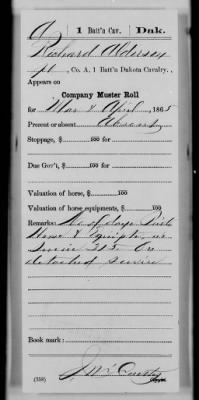 A | 1 Batt'n Cav. | Dak.
Richard
Pt, Co. A, 1 Batt'n Dakota Cavalry.,
Appears on
Company Muster Roll
for Mar & April, 1865
Present or absent,
Stoppage, $ 100 for
Due Gov't, $ 100 for
Valuation of horse, $ 100
Valuation of horse equipments, $ 100
Remarks: No of days Priv
Horse & Equipts in
Service On
detached service
Book mark:
(358)
Copyist.